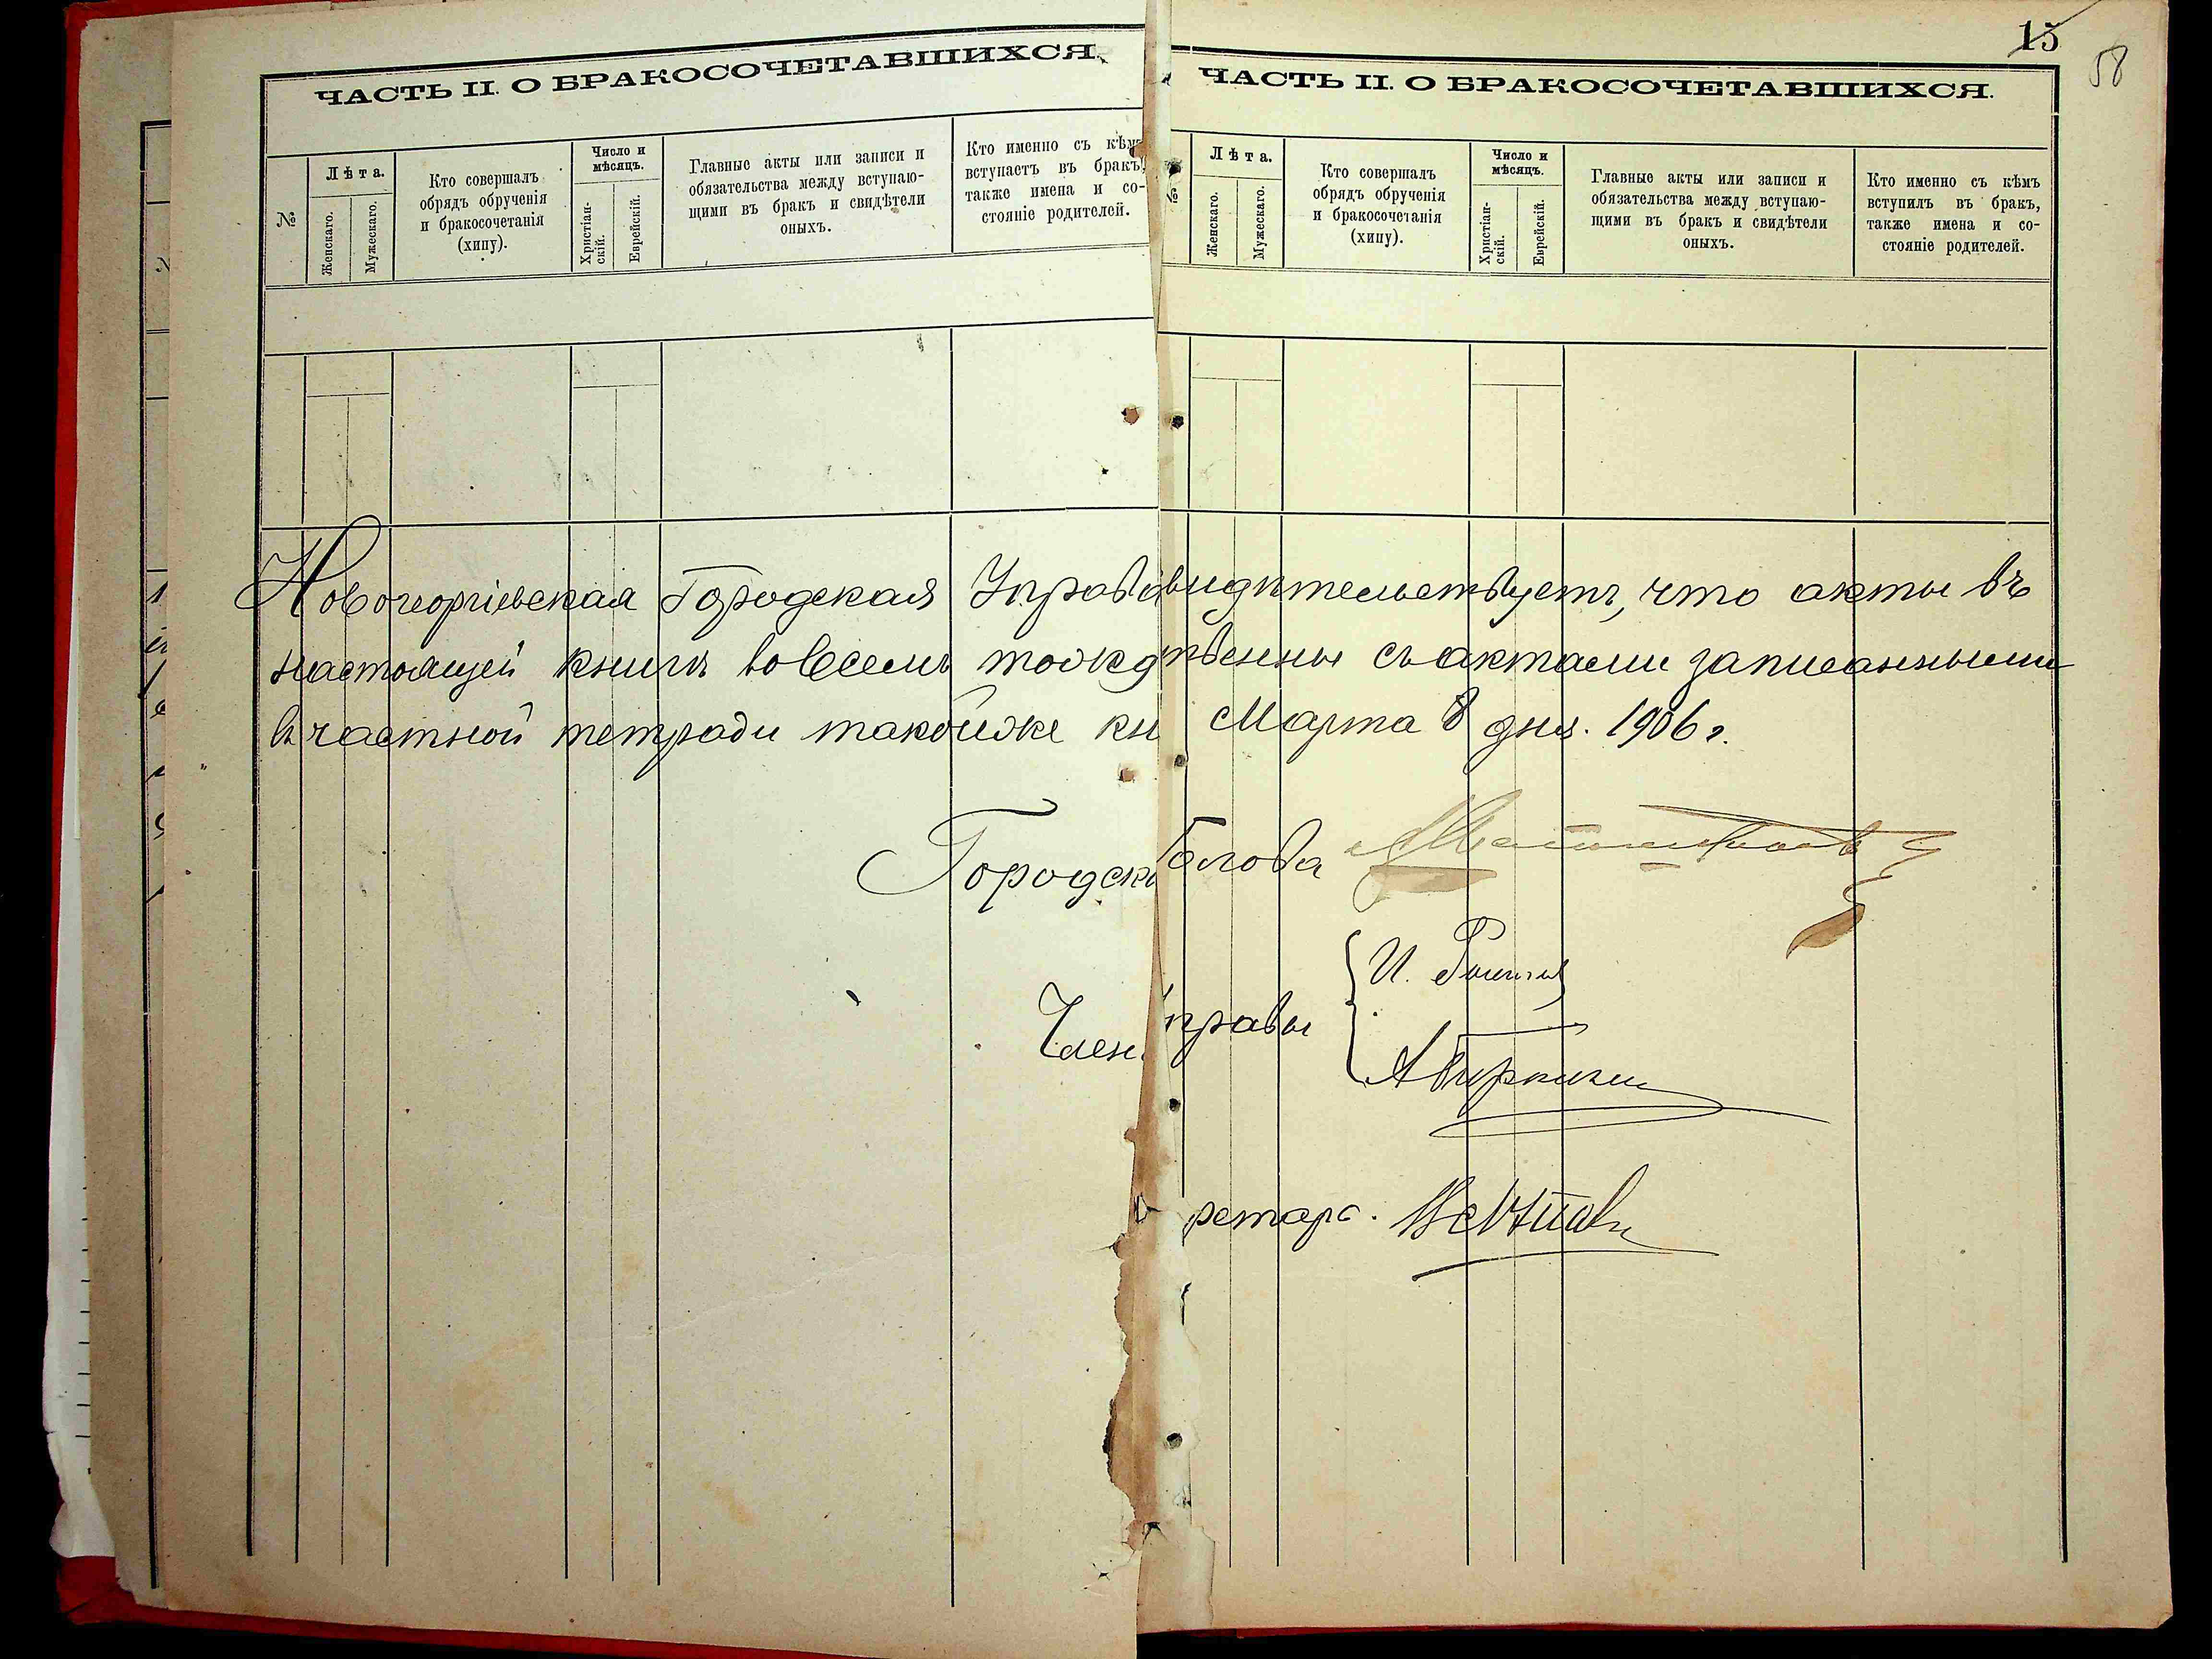 ЧАСТЬ II. О БРАКОСОЧЕТАВШИХСЯ.
№
Лѣта.
Женскаго.
Мужескаго.
Кто совершалъ
обрядъ обрученія
и бракосочетанія
(хипу).
Число и
мѣсяцъ.
Христіан-
скій.
Еврейскій.
Главные акты или записи и
обязательства между вступаю-
щими въ бракъ и свидѣтели
оныхъ.
Кто именно съ кѣмъ
вступаетъ въ бракъ,
также имена и со-
стояніе родителей.
15
58
ЧАСТЬ II. О БРАКОСОЧЕТАВШИХСЯ.
№
Лѣта.
Женскаго.
Мужескаго.
Кто совершалъ
обрядъ обрученія
и бракосочетанія
(хипу).
Число и
мѣсяцъ.
Христіан-
скій.
Еврейскій.
Главные акты или записи и
обязательства между вступаю-
щими въ бракъ и свидѣтели
оныхъ.
Кто именно съ кѣмъ
вступилъ въ бракъ,
также имена и со-
стояніе родителей.
Новогеоргіевская Городская Управа видѣтельствуетъ, что акты въ
настоящей книгѣ во всемъ тождественны съ актами записанными
въ частной тетради такойже кн Марта 8 дня. 1906 г.
Городск Голова
Член правы
И.
ретарь.